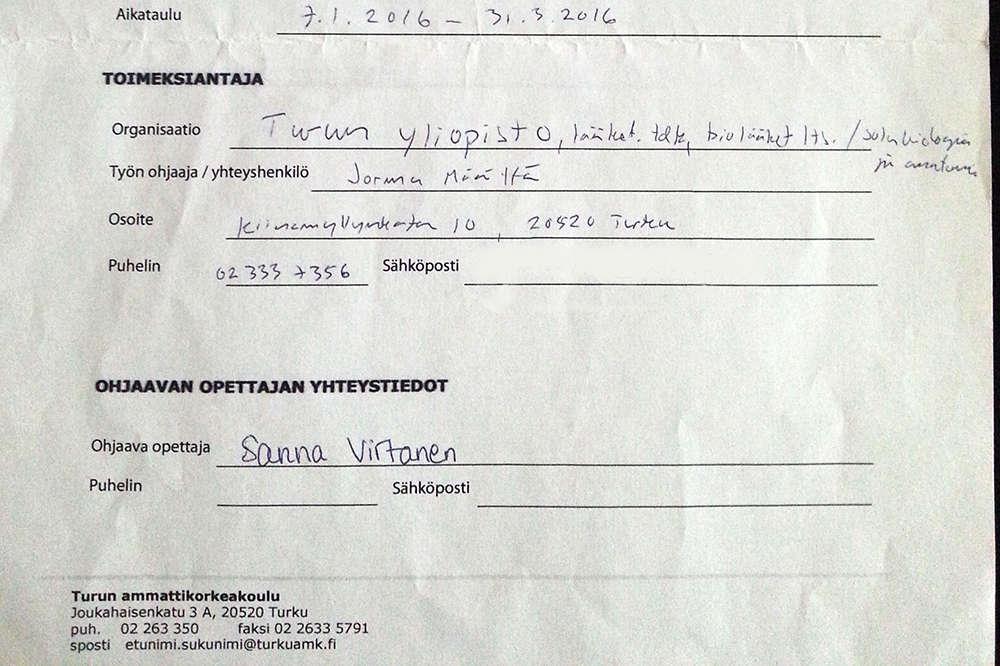 Aikataulu 7.1.2016 – 31.3.2016
TOIMEKSIANTAJA
Organisaatio Turun yliopisto, lääket. tdk, biolääket lts. / solubiologia
ja anatomia
Työn ohjaaja / yhteyshenkilö Jorma Määttä
Osoite Kiinamyllynkatu 10, 20520 Turku
Puhelin 02 333 7356 Sähköposti
OHJAAVAN OPETTAJAN YHTEYSTIEDOT
Ohjaava opettaja Sanna Virtanen
Puhelin Sähköposti
Turun ammattikorkeakoulu
Joukahaisenkatu 3 A, 20520 Turku
puh. 02 263 350 faksi 02 2633 5791
sposti etunimi.sukunimi@turkuamk.fi